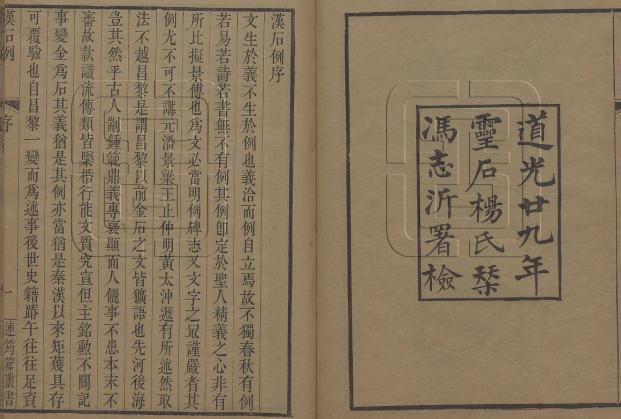 道光廿九年
靈石楊氏栞
馮志沂署檢
漢石例序
文生於義不生於例也義洽而例自立焉故不獨春秋有例
若易若詩若書無不有例其例卽定於聖人精義之心非有
所比擬景傅也爲文必當明例碑志又文字之最謹嚴者其
例尤不可不講元潘景梁王止仲明黃太沖遞有所述然取
法不越昌黎是謂昌黎以前金石之文皆獷語也先河後海
豈其然乎古人制鍾範鼎義專襃顯而人儷事不患本末不
審故款識流傳類皆槩而行能文質究宣但主銘勳不關記
事變金爲石其義猶是其例亦當猶是秦漢以來矩矱具存
可覆驗也自昌黎一變而爲述事後世史籍踳午往往足資
漢石例
序
一
連筠簃叢書